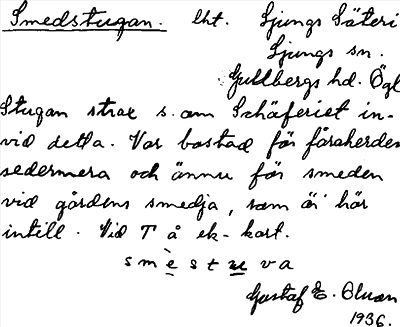 Smedstugan. lht. Ljungs Säteri
Ljungs sn.
Gullbergs hd. Ögl
Stugan strax s. om Schäferiet in-
vid detta. Var bostad för fåraherden
sedermera och ännu för smeden
vid gårdens smedja, som är här
intill. Vid T å ek-kart.
smèstuva
Gustaf E. Olsson
1936.